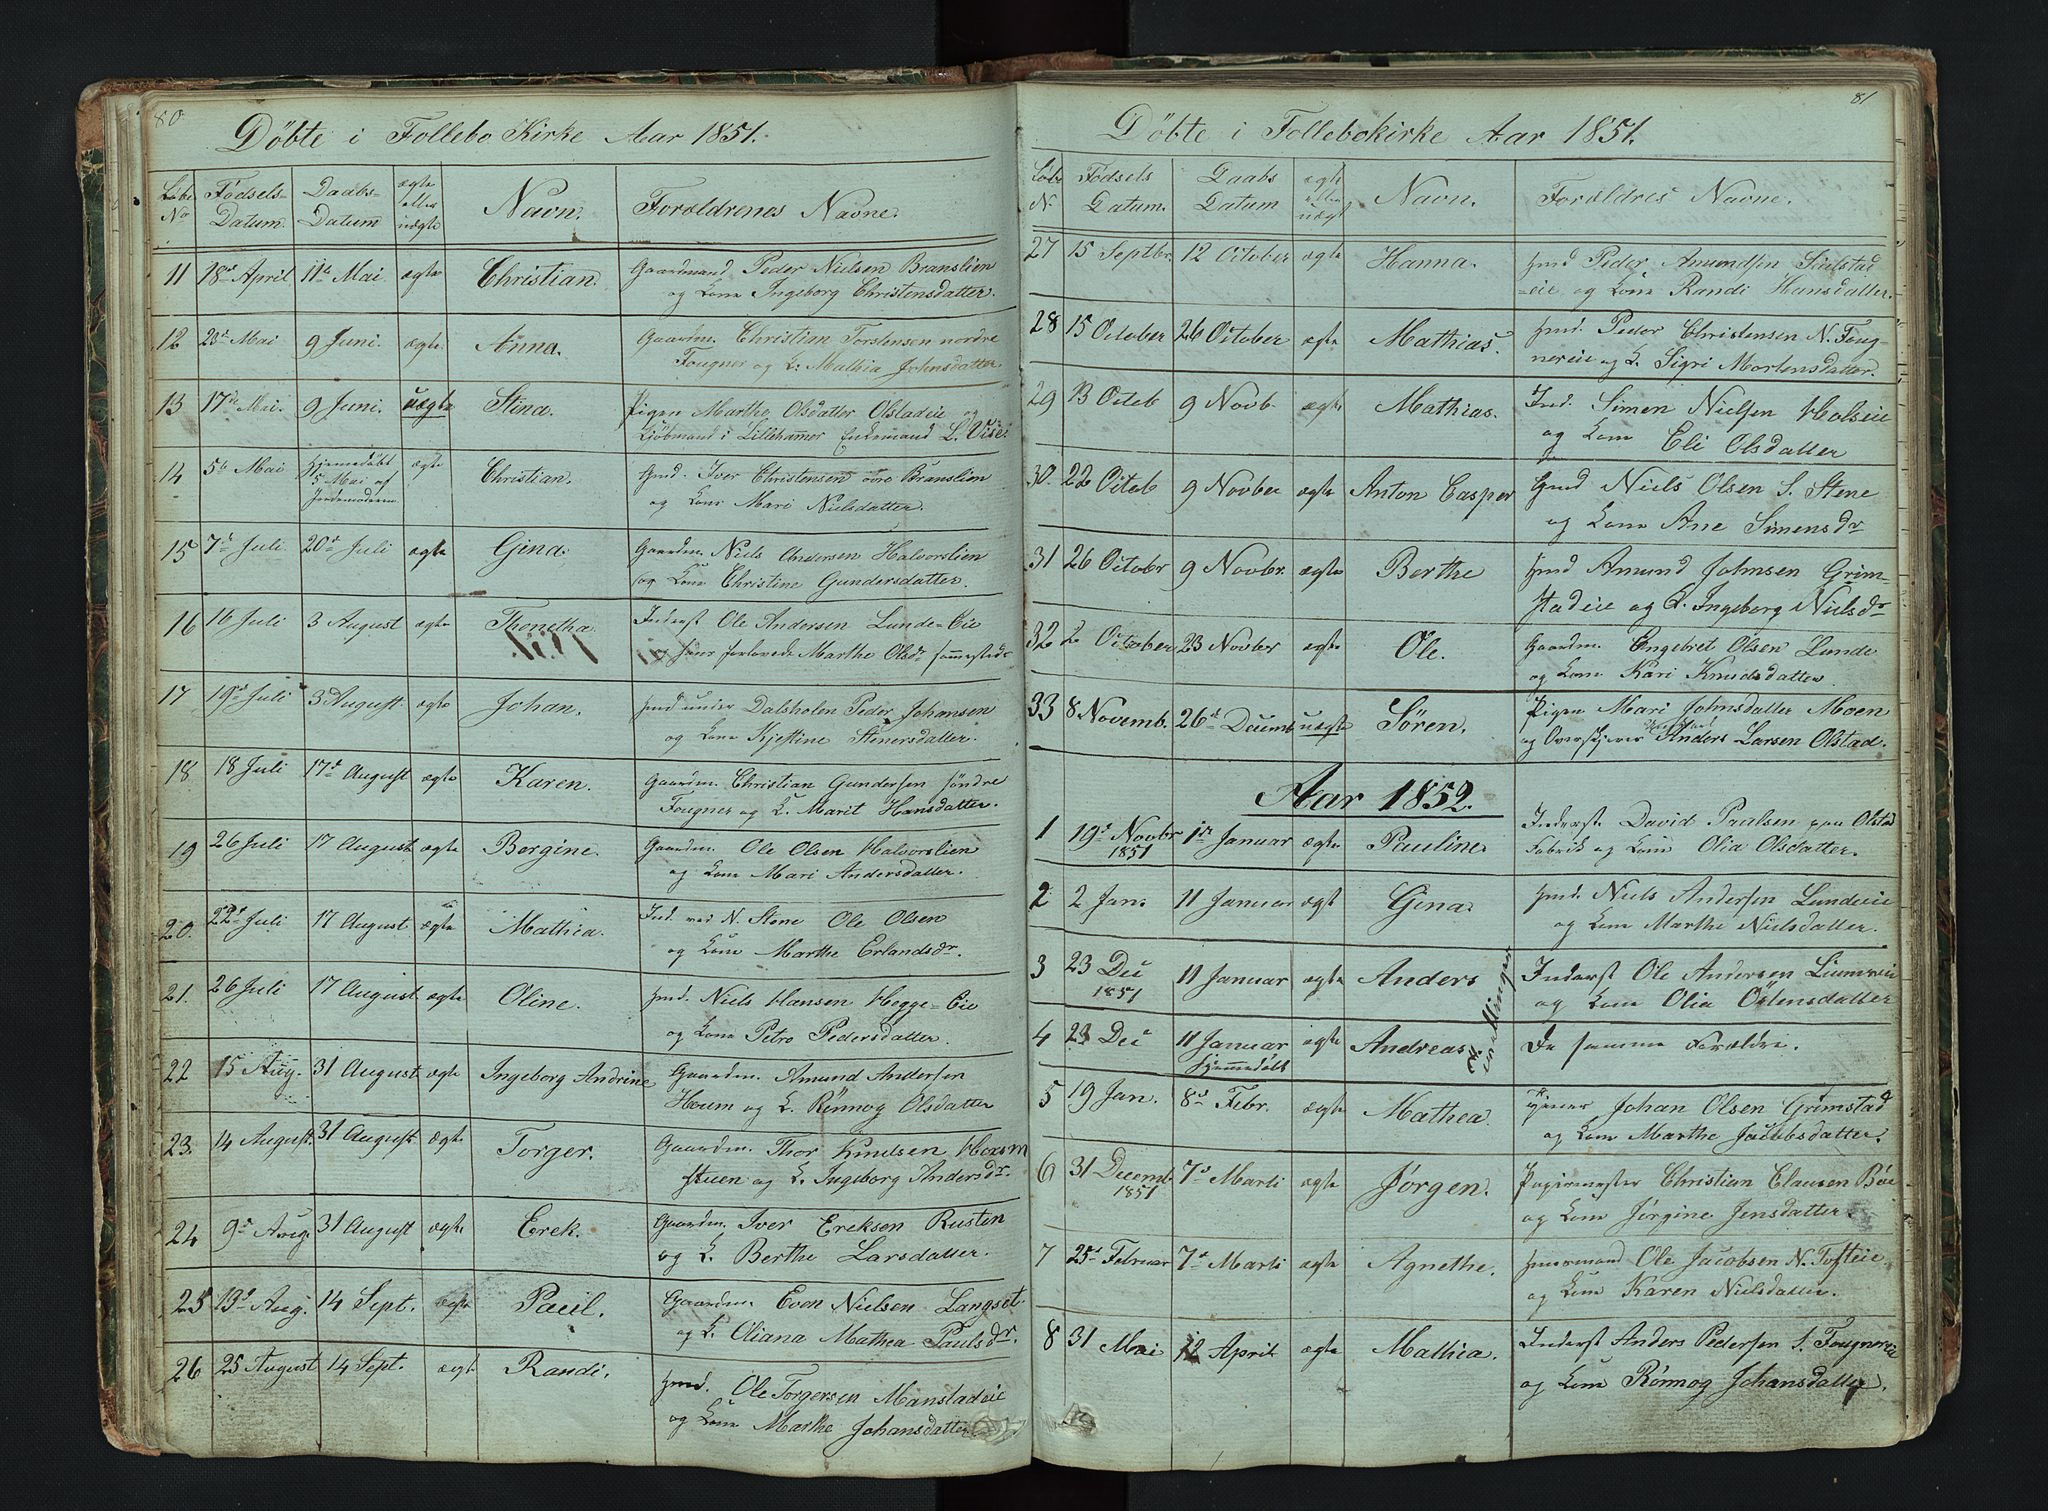 80.
Döbte i Follebo Kirke Aar 1851.
Löbe No Födsels-Datum. Daabs-Datum ægte eller uægte Navn. Forældrenes Navne.
11 18de April 11te Mai. ægte Christian. Gaardmand Peder Nielsen Branslien
og Kone Ingeborg Christensdatter.
12 23de Mai 9 Juni. ægte. Anna. Gaardm. Christian Torstensen nordre
Fougner og K. Mathia Johnsdatter.
13 17de Mai. 9 Juni. uægte Stina. Pigen Marthe Olsdatter Olstadeie og
Kjöbmand i Lillehamer Enkemand L.
14 5te Mai Hjemmedöbt ægte Christian. Hmd. Iver Christensen övre Branslien
5 Mai af og Kone Mari Nielsdatter.
Jordemoderen
15 7de Juli 20de Juli ægte Gina. Gaardm. Niels Andersen Halvorslien
og Kone Christine Gundersdatter.
16 16 Juli 3 August ægte Thonetha Inderst Ole Andersen Lunde-Eie
og hans forlovede Marthe Olsdr sammesteds
17 19de Juli 3 August. ægte Johan. Hmd under Dalsholen Peder Johansen
og Kone Kjestine Stenersdatter.
18 18 Juli 17de August ægte Karen. Gaardm. Christian Gundersen söndre
Fougner og K. Marit Hansdatter.
19 26 Juli 17 August ægte Bergine. Gaardm. Ole Olsen Halvorslien
og Kone Mari Andersdatter.
20. 22de Juli 17 August ægte Mathea. Ind. ved N. Stene Ole Olsen
og Kone Marthe Erlandsdr.
21. 26 Juli 17 August ægte Oline. Hmd. Niels Hansen Hegge-Eie
og Kone Petro Pedersdatter.
22 15 Aug. 31 August ægte Ingeborg Andrine Gaardm. Amund Andersen
Hoium og K. Rönnog Olsdatter
23. 14 August. 31 August. ægte Torger. Gaardm. Thor Knudsen
og K. Ingeborg Andersdr.
24 9de Aug. 31 August ægte Erek. Gaardm. Iver Ereksen Rusten
og K. Berthe Larsdatter.
25 13de Aug. 14 Sept. ægte Paul. Gaardm. Even Nielsen Langset
og K. Oliana Mathea Paulsdr.
26 25 August 14 Sept. ægte Randi. Hmd. Ole Torgersen Manstadeie
og Kone Marthe Johansdatter
81
Döbte i Follebokirke Aar 1851.
Löbe N. Födsels Datum. Daabs Datum ægte eller uægt Navn. Forældres Navne.
27 15 Septbr. 12 October ægte Hanna. Hmd Peder Amundsen
eie og Kone Randi Hansdatter.
28 15 October 26 October ægte Mathias. Hmd. Peder Christensen N. Foug-
nereie og K. Sigri Mortensdatter.
29 13 Octob 9 Novb. ægte Mathias. Ind. Simen Nielsen Holseie
og Kone Eli Olsdatter
30. 22 Octob 9 Novber ægte Anton Casper Gmd Niels Olsen S. Stene
og Kone Ane Simensdr
31 26 Octobr 9 Novbr. ægte Berthe Hmd Amund Johnsen Grim-
stadeie og K. Ingeborg Nielsdr
32 2 October 23 Novber ægte Ole. Gaardm. Engebret Olsen Lunde
og Kone Kari Knudsdatter
33 8 Novemb. 26de Decemb uægte Sören. Pigen Mari Johnsdatter Moen
og Anders Larsen Olstad.
Aar 1852.
1 19de Novbr 1851 1ste Januar ægte Pauline. Inderst David Paalsen paa Olstad
Fabrik og Kone Olia Olsdatter.
2 2 Jan. 11 Januar ægt Gina. Hmd. Niels Andersen Lundeie
og Kone Marthe Nielsdatter.
3 23 Dec 1851 11 Januar ægte Anders Inderst Ole Andersen
og Kone Olia Östensdatter
Tvillinger
4 23 Dec 11 Januar ægte Andreas De samme Forældre.
hjemmedöbt
5 19 Jan. 8de Febr. ægte Mathea. Johan Olsen Grimstad
og Kone Marthe Jacobsdatter.
6 31 Decemb. 1851 7de Marti ægte Jørgen. Papirmester Christian Clausen
og Kone Jørgine Jensdatter.
7 25de Februar 7de Marti ægte Agnethe. Huusmand Ole Jacobsen N. Tofteie
og Kone Karen Nielsdatter.
8 31 Mai 12 April ægte Mathea. Inderst Anders Pedersen S. Fougnereie
og Kone Rönnog Johansdatter.